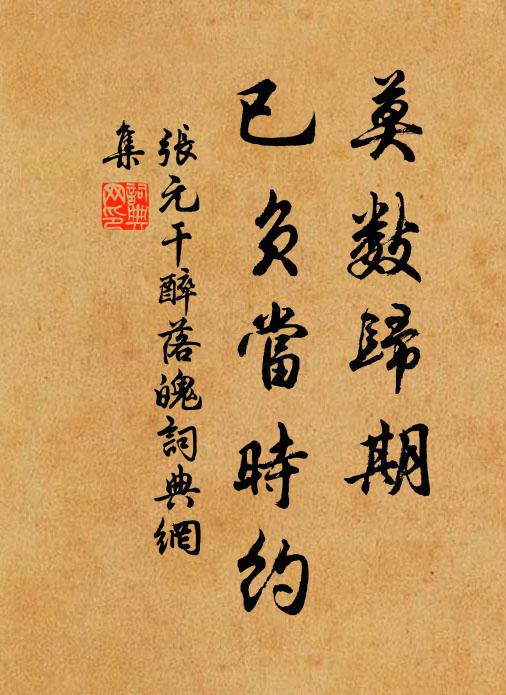 莫數歸期
已負當時約
張元干醉落魄詞典網
集
詞典網印